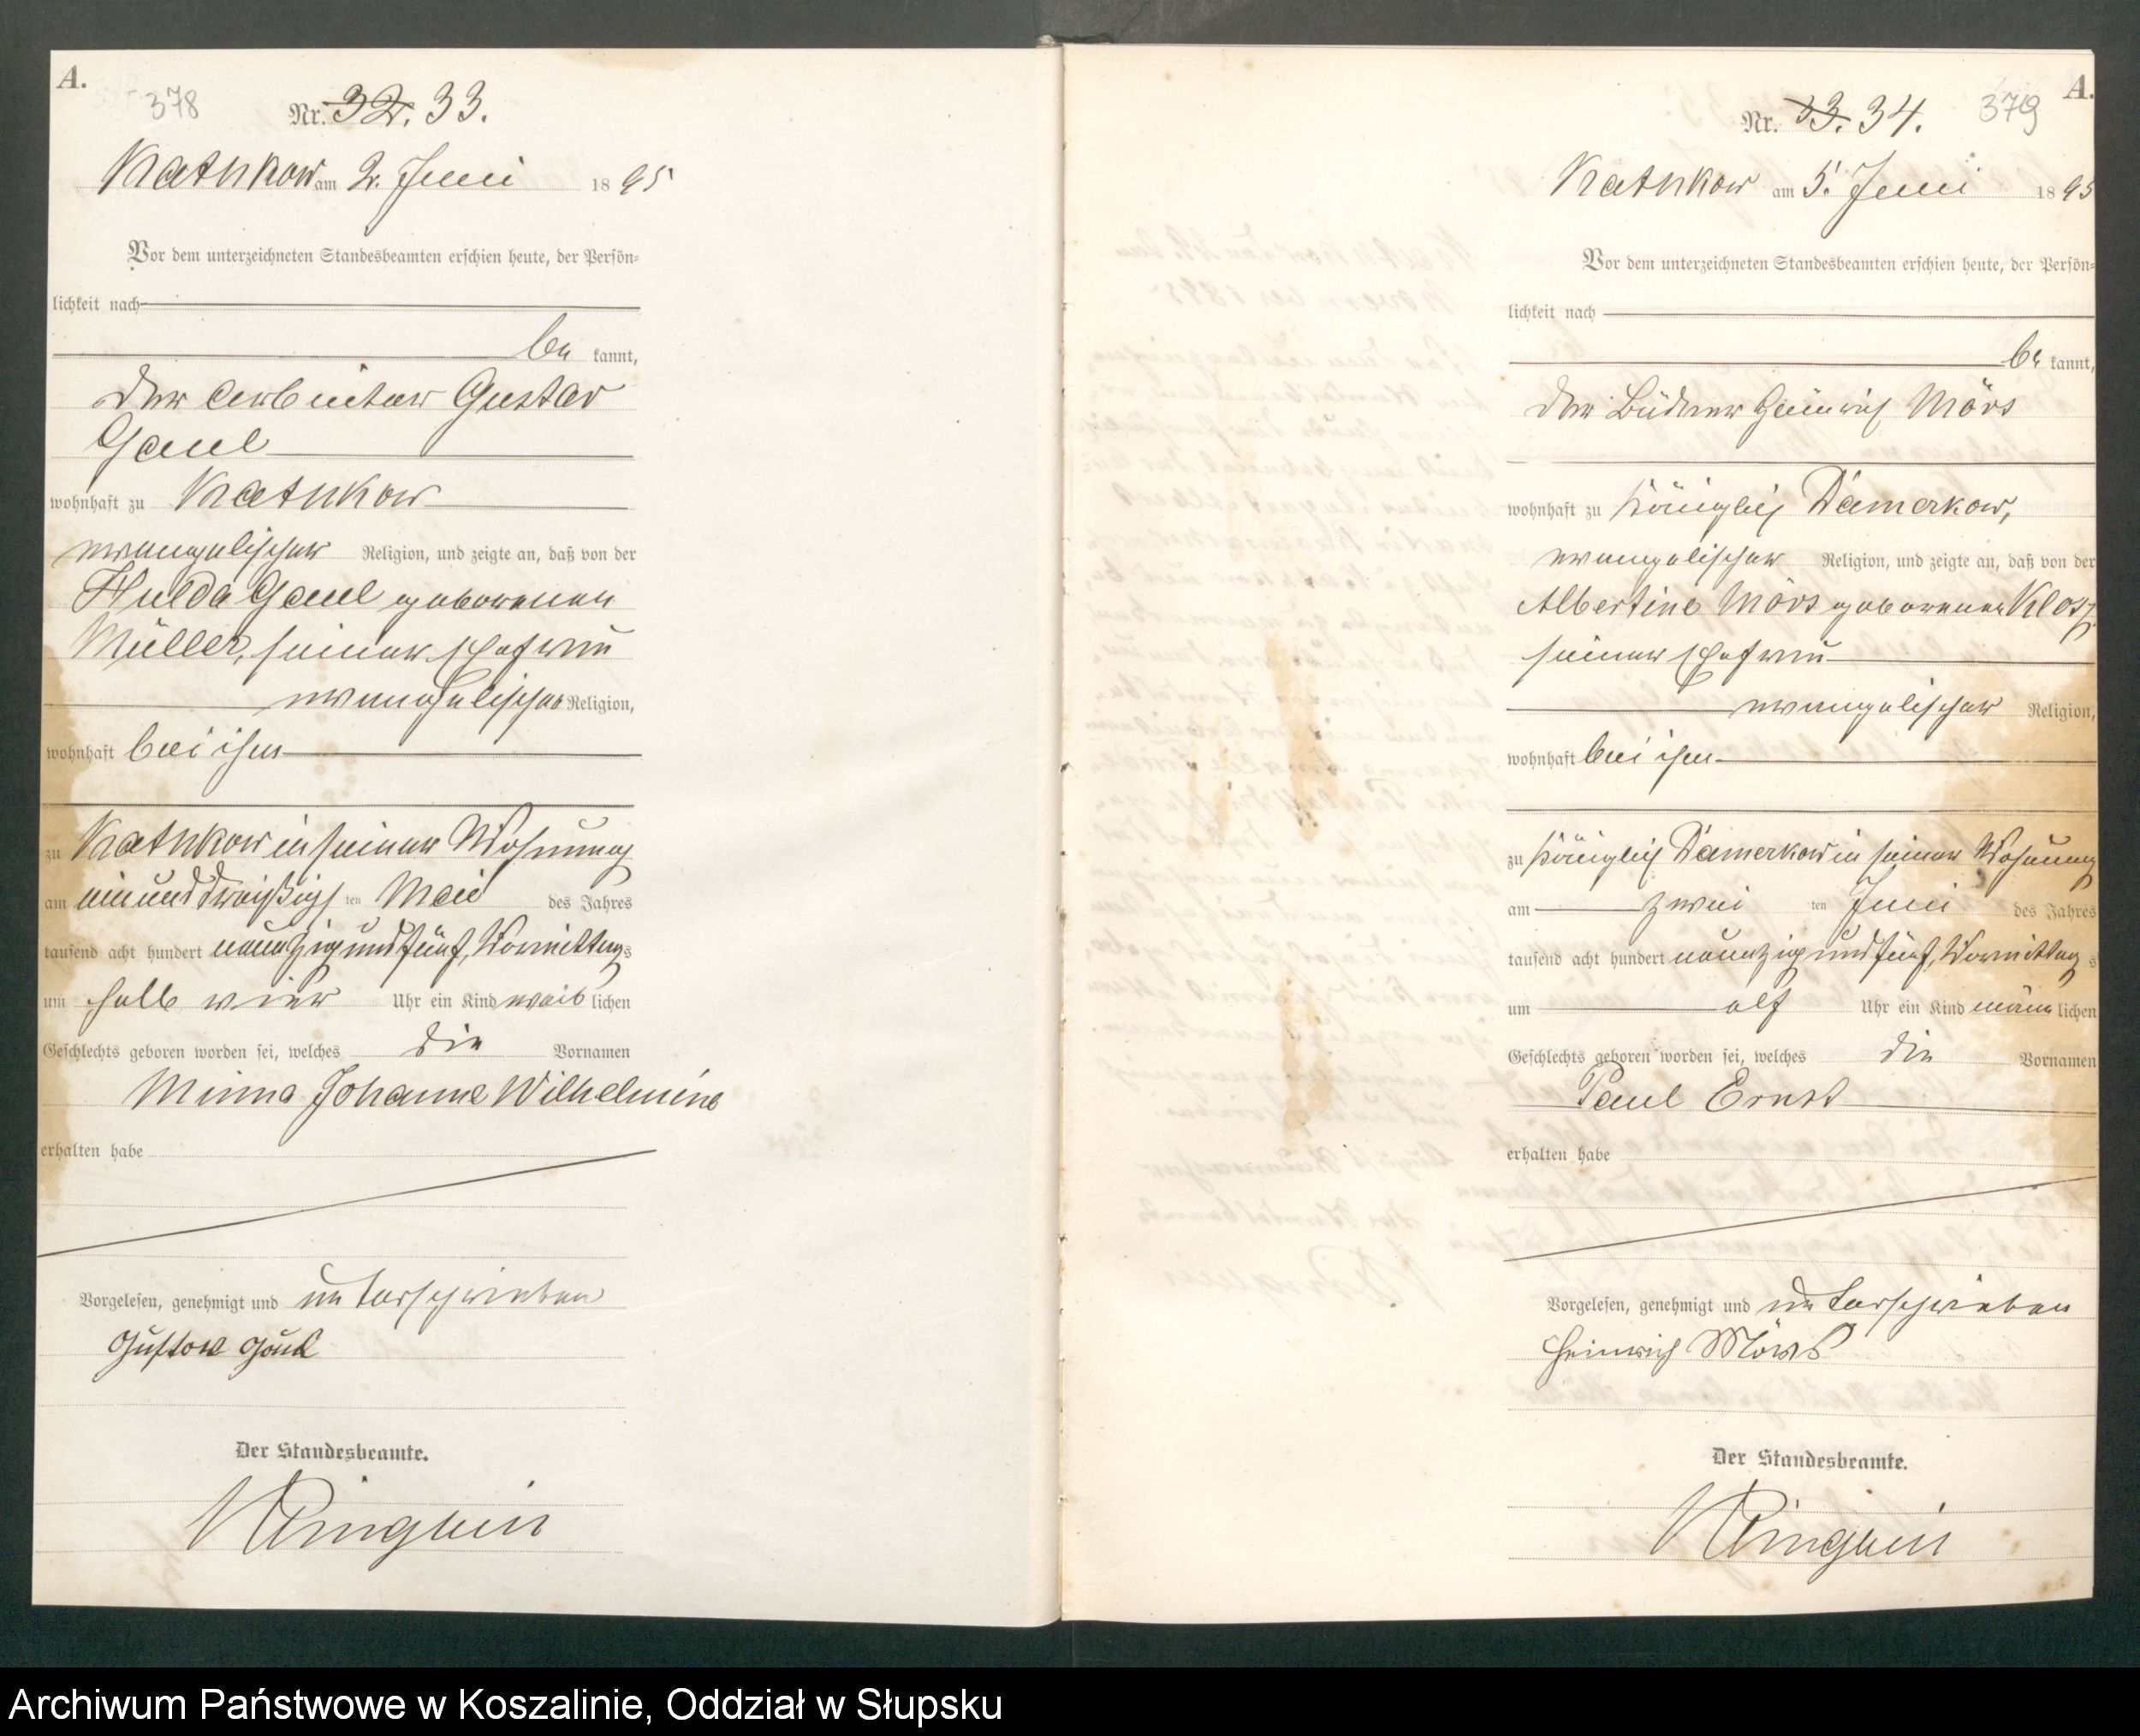 A.
378
Nr. 32. 33.
Kathkow am 2. Juni 1895
Vor dem unterzeichneten Standesbeamten erschien heute, der Persön-
lichkeit nach
be kannt,
der Arbeiter Gustav
Gaul
wohnhaft zu Kathkow
evangelischer Religion, und zeigte an, daß von der
Hulda Gaul geborenen
Müller, seiner Ehefrau
evangelischer Religion,
wohnhaft bei ihm
zu Kathkow in seiner Wohnung
am einunddreißigsten Mai des Jahres
tausend acht hundert neunzig und fünf, Vormittags
um halb vier Uhr ein Kind weiblichen
Geschlechts geboren worden sei, welches die Vornamen
Minna Johanne Wilhelmine
erhalten habe
Vorgelesen, genehmigt und unterschrieben
Gustav Gaul
Der Standesbeamte.
A.
379
Nr. 33. 34.
Kathkow am 5. Juni 1895
Vor dem unterzeichneten Standesbeamten erschien heute, der Persön-
lichkeit nach
be kannt,
der Büdner Heinrich Mörs
wohnhaft zu Königlich Damerkow,
evangelischer Religion, und zeigte an, daß von der
Albertine Mörs geborenen Klotz
seiner Ehefrau
evangelischer Religion,
wohnhaft bei ihm
zu Königlich Damerkow in seiner Wohnung
am zweiten Juni des Jahres
tausend acht hundert neunzig und fünf, Vormittags
um elf Uhr ein Kind männlichen
Geschlechts geboren worden sei, welches die Vornamen
Paul Ernst
erhalten habe
Vorgelesen, genehmigt und unterschrieben
Heinrich Mörs
Der Standesbeamte.
Archiwum Państwowe w Koszalinie, Oddział w Słupsku